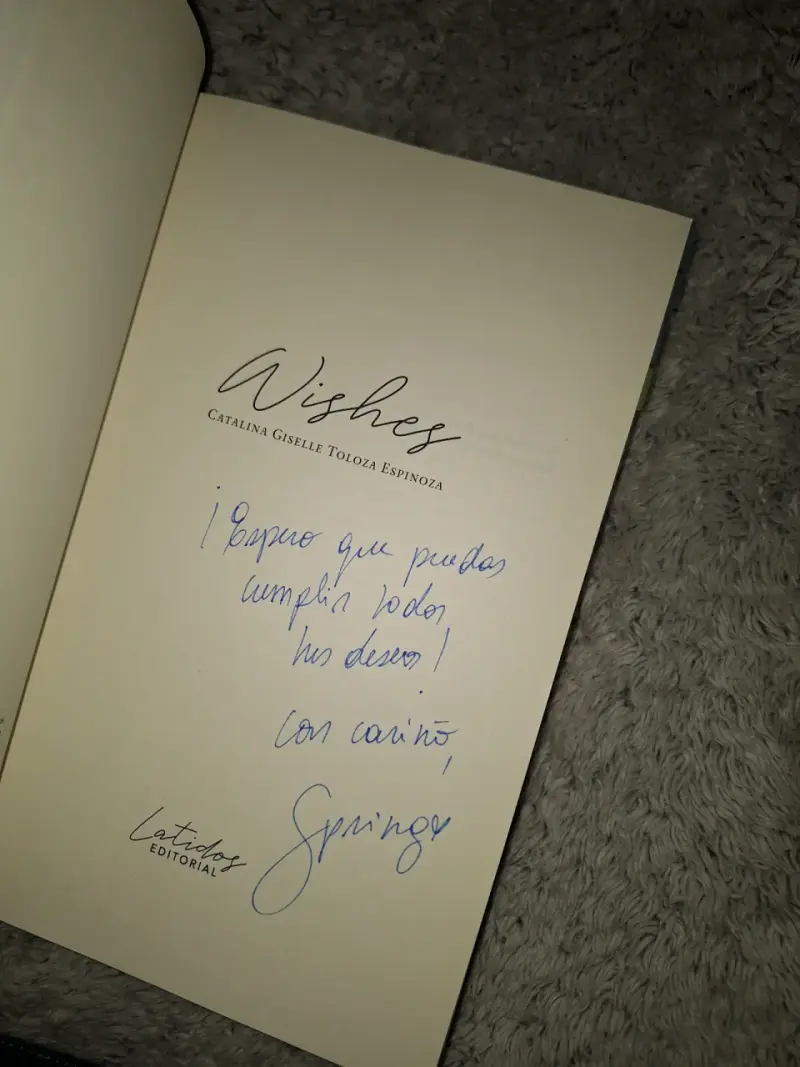 Wishes
CATALINA GISELLE TOLOZA ESPINOZA
¡Espero que puedas
cumplir todos
tus deseos!
Con cariño,
Spring
Latidos
EDITORIAL